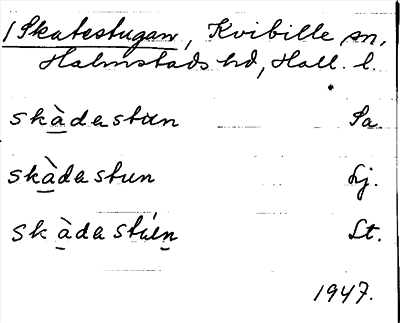 /Skatestugan, Kvibille sn,
Halmstads hd, Hall. l.
skàdastun Sa.
skàdastun Lj.
skàdastúen St.
1947.